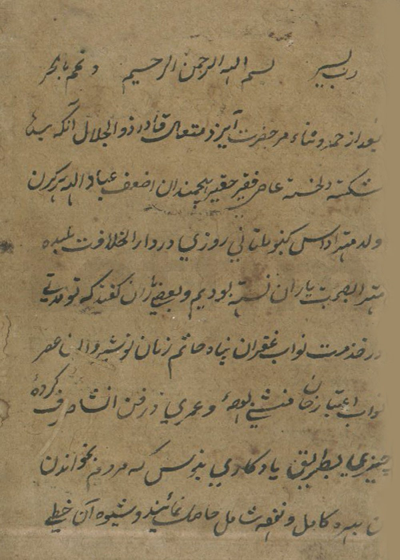 رب یسر بسم الله الرحمن الرحیم و تمم بالخیر
بعد از حمد و ثناء مر حضرت ایزد متعال قادر ذوالجلال آنکه
شکسته دلخسته عاصی فقیر حقیر هیچمندان اضعف عباد الله هرکرن
ولد متهراداس کنبو ملتانی روزی در دار الخلافت
متهرا بصحبت یاران نشسته بودیم و بعضی یاران گفتند که تو مدتی
در خدمت نواب غفران پناه حاتم زمان نوشیروان عصر
نواب اعتبار خان منشی بوده و عمری در فن انشا صرف کرده
چیزی بطریق یادگاری بنویس که مردم بخواندن
بهره کامل و نفعه شامل حاصل نمایند و شیوه آن خطی